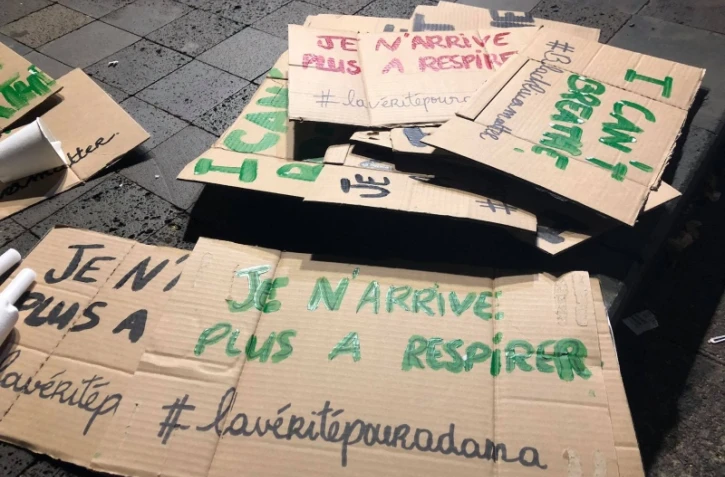 JE N'ARRIVE
PLUS A RESPIRER
#lavéritépoura
#Blacklivesmatter
I CAN'T
BREATHE!
I CAN
JE
#
matter.
JE N'
PLUS A
lavéritép
JE N'ARRIVE
PLUS A RESPIRER
#lavéritépouradama